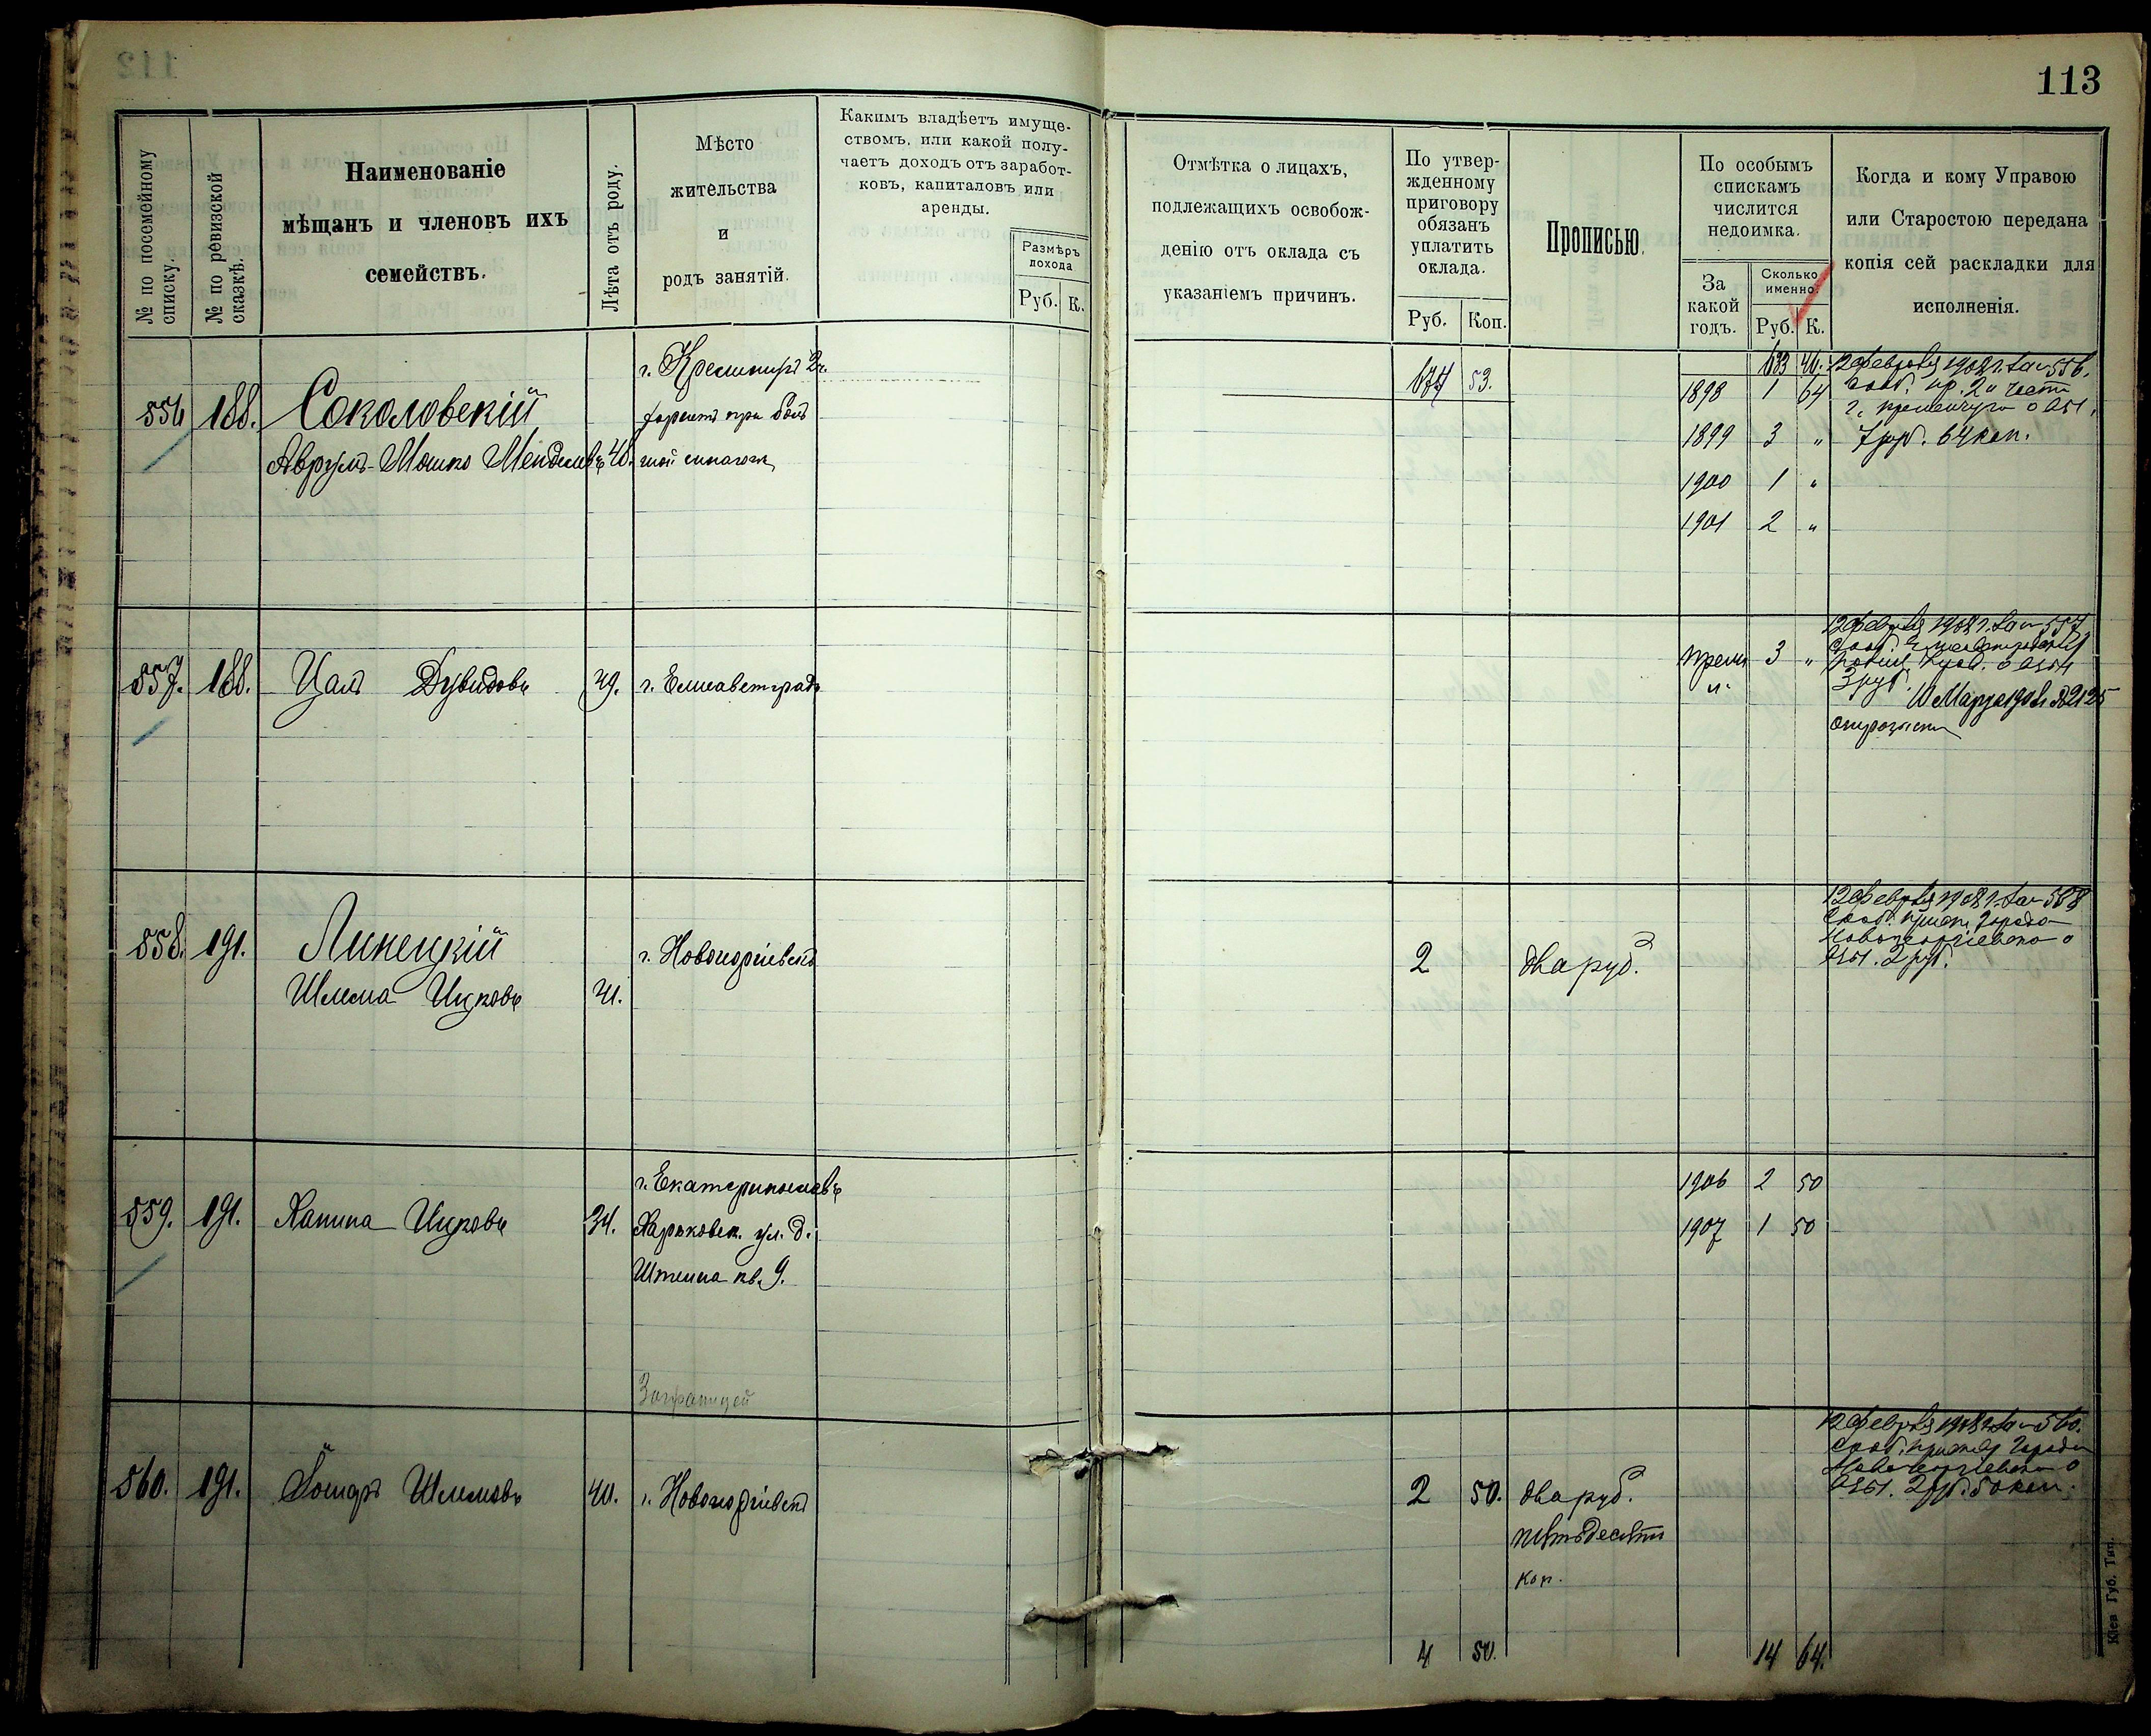 113
№ по посемейному списку.
№ по ревизской сказкѣ.
Наименованіе
мѣщанъ и членовъ ихъ
семействъ.
Лѣта отъ роду.
Мѣсто
жительства
и
родъ занятій.
Какимъ владѣетъ имуще-
ствомъ, или какой полу-
чаетъ доходъ отъ заработ-
ковъ, капиталовъ или
аренды.
Размѣръ
дохода
Руб. К.
Отмѣтка о лицахъ,
подлежащихъ освобож-
денію отъ оклада съ
указаніемъ причинъ.
По утвер-
жденному
приговору
обязанъ
уплатить
оклада.
Руб. Коп.
Прописью.
По особымъ
спискамъ
числится
недоимка.
За
какой
годъ.
Сколько
именно.
Руб. К.
Когда и кому Управою
или Старостою передана
копія сей раскладки для
исполненія.
г. Кременчугъ 2 ч.
674 53.
633 40.
556 188. Соколовскій
при
Аврумъ-Мошко Менделевъ 40.
1898 1 64
1899 3 "
1900 1 "
1901 2 "
12 февраля 1908 г. за № 556.
сооб. пр. 2й части
г. Кременчуга о взы.
7 руб. 64 коп.
557. 188. Цалъ Дувидовъ 29. г. Елисаветградъ
3 "
12 февраля 1908 г. за № 557
3 руб.
558. 191. Линецкій г. Новогеоргіевскъ
Шлема Ицковъ 41.
2 два руб.
12 февраля 1908 г. за № 558
сооб. прист. города
Новогеоргіевска о
взы. 2 руб.
г. Екатеринославъ
559. 191. Ханина Ицковъ 34. Харьковск. ул. д.
Штейна кв. 9.
1906 2 50
1907 1 50
Заграницей
560. 191. Шлемовъ 40. г. Новогеоргіевскъ
2 50. два руб.
пятьдесятъ
коп.
12 февраля 1908 г. за № 560.
сооб. приставу города
Новогеоргіевска о
взы. 2 руб. 50 коп.
4 50.
14 64.
Кіев. Губ. Тип.